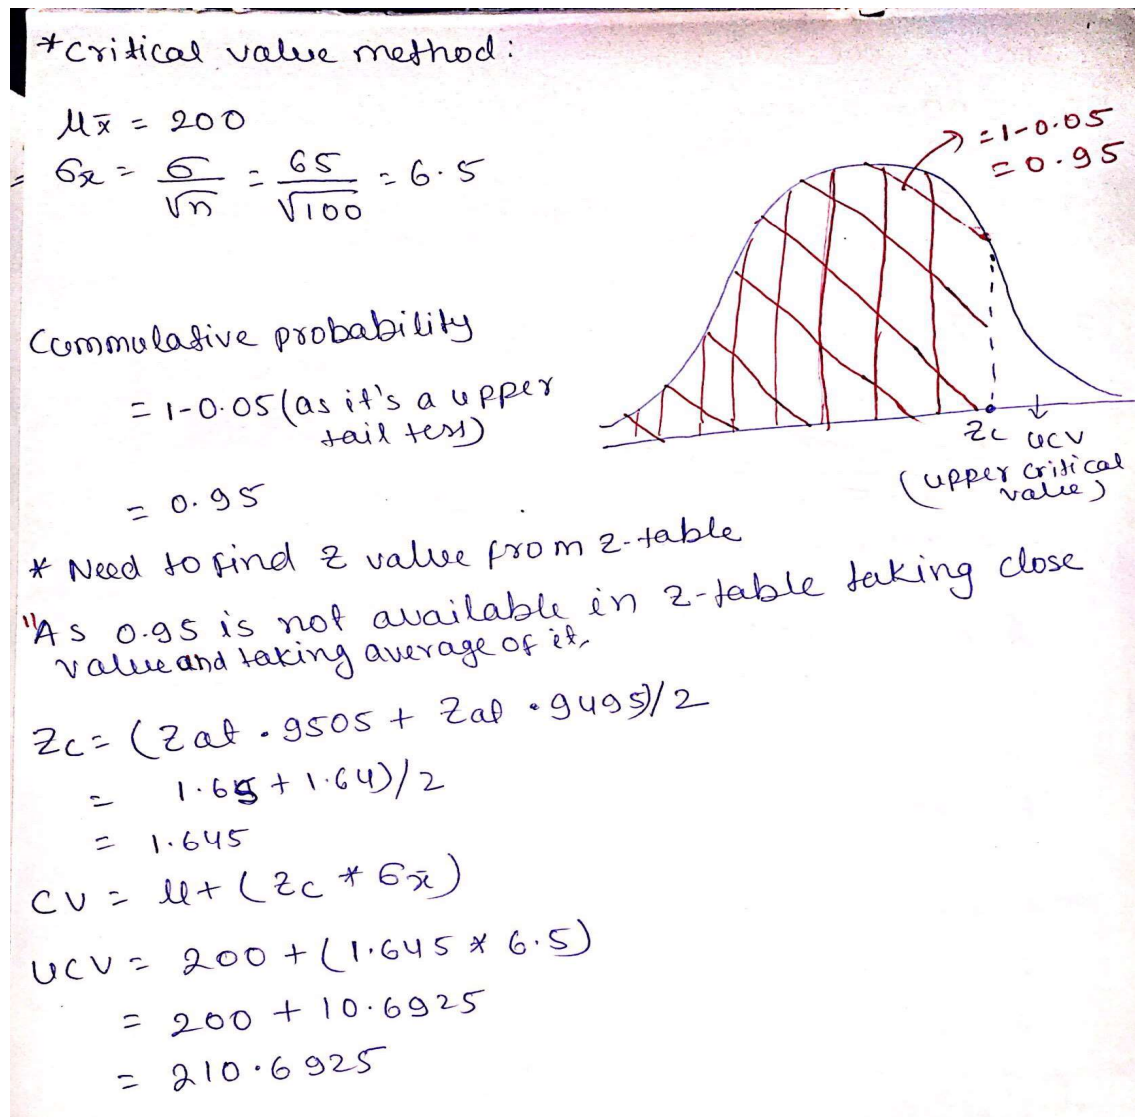 *Critical value method:
μx̄ = 200
σx = σ/√n = 65/√100 = 6.5
=1-0.05
=0.95
Commulative probability
= 1-0.05 (as it's a upper
tail test)
= 0.95
Zc
UCV
(upper critical
value)
* Need to find z value from z-table
"As 0.95 is not available in z-table taking close
value and taking average of it.
Zc = (Z at .9505 + Z at .9495)/2
= 1.65 + 1.64)/2
= 1.645
CV = μ + (Zc * σx̄)
UCV = 200 + (1.645 * 6.5)
= 200 + 10.6925
= 210.6925